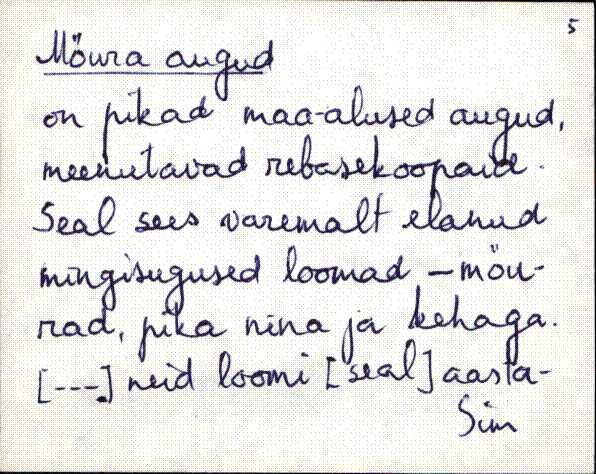 5
Mõura augud
on pikad maa-alused augud,
meenutavad rebasekoopaid.
Seal sees varemalt elanud
mingisugused loomad – mõu-
rad, pika nina ja kehaga.
[---] neid loomi [seal] aasta-
Sim